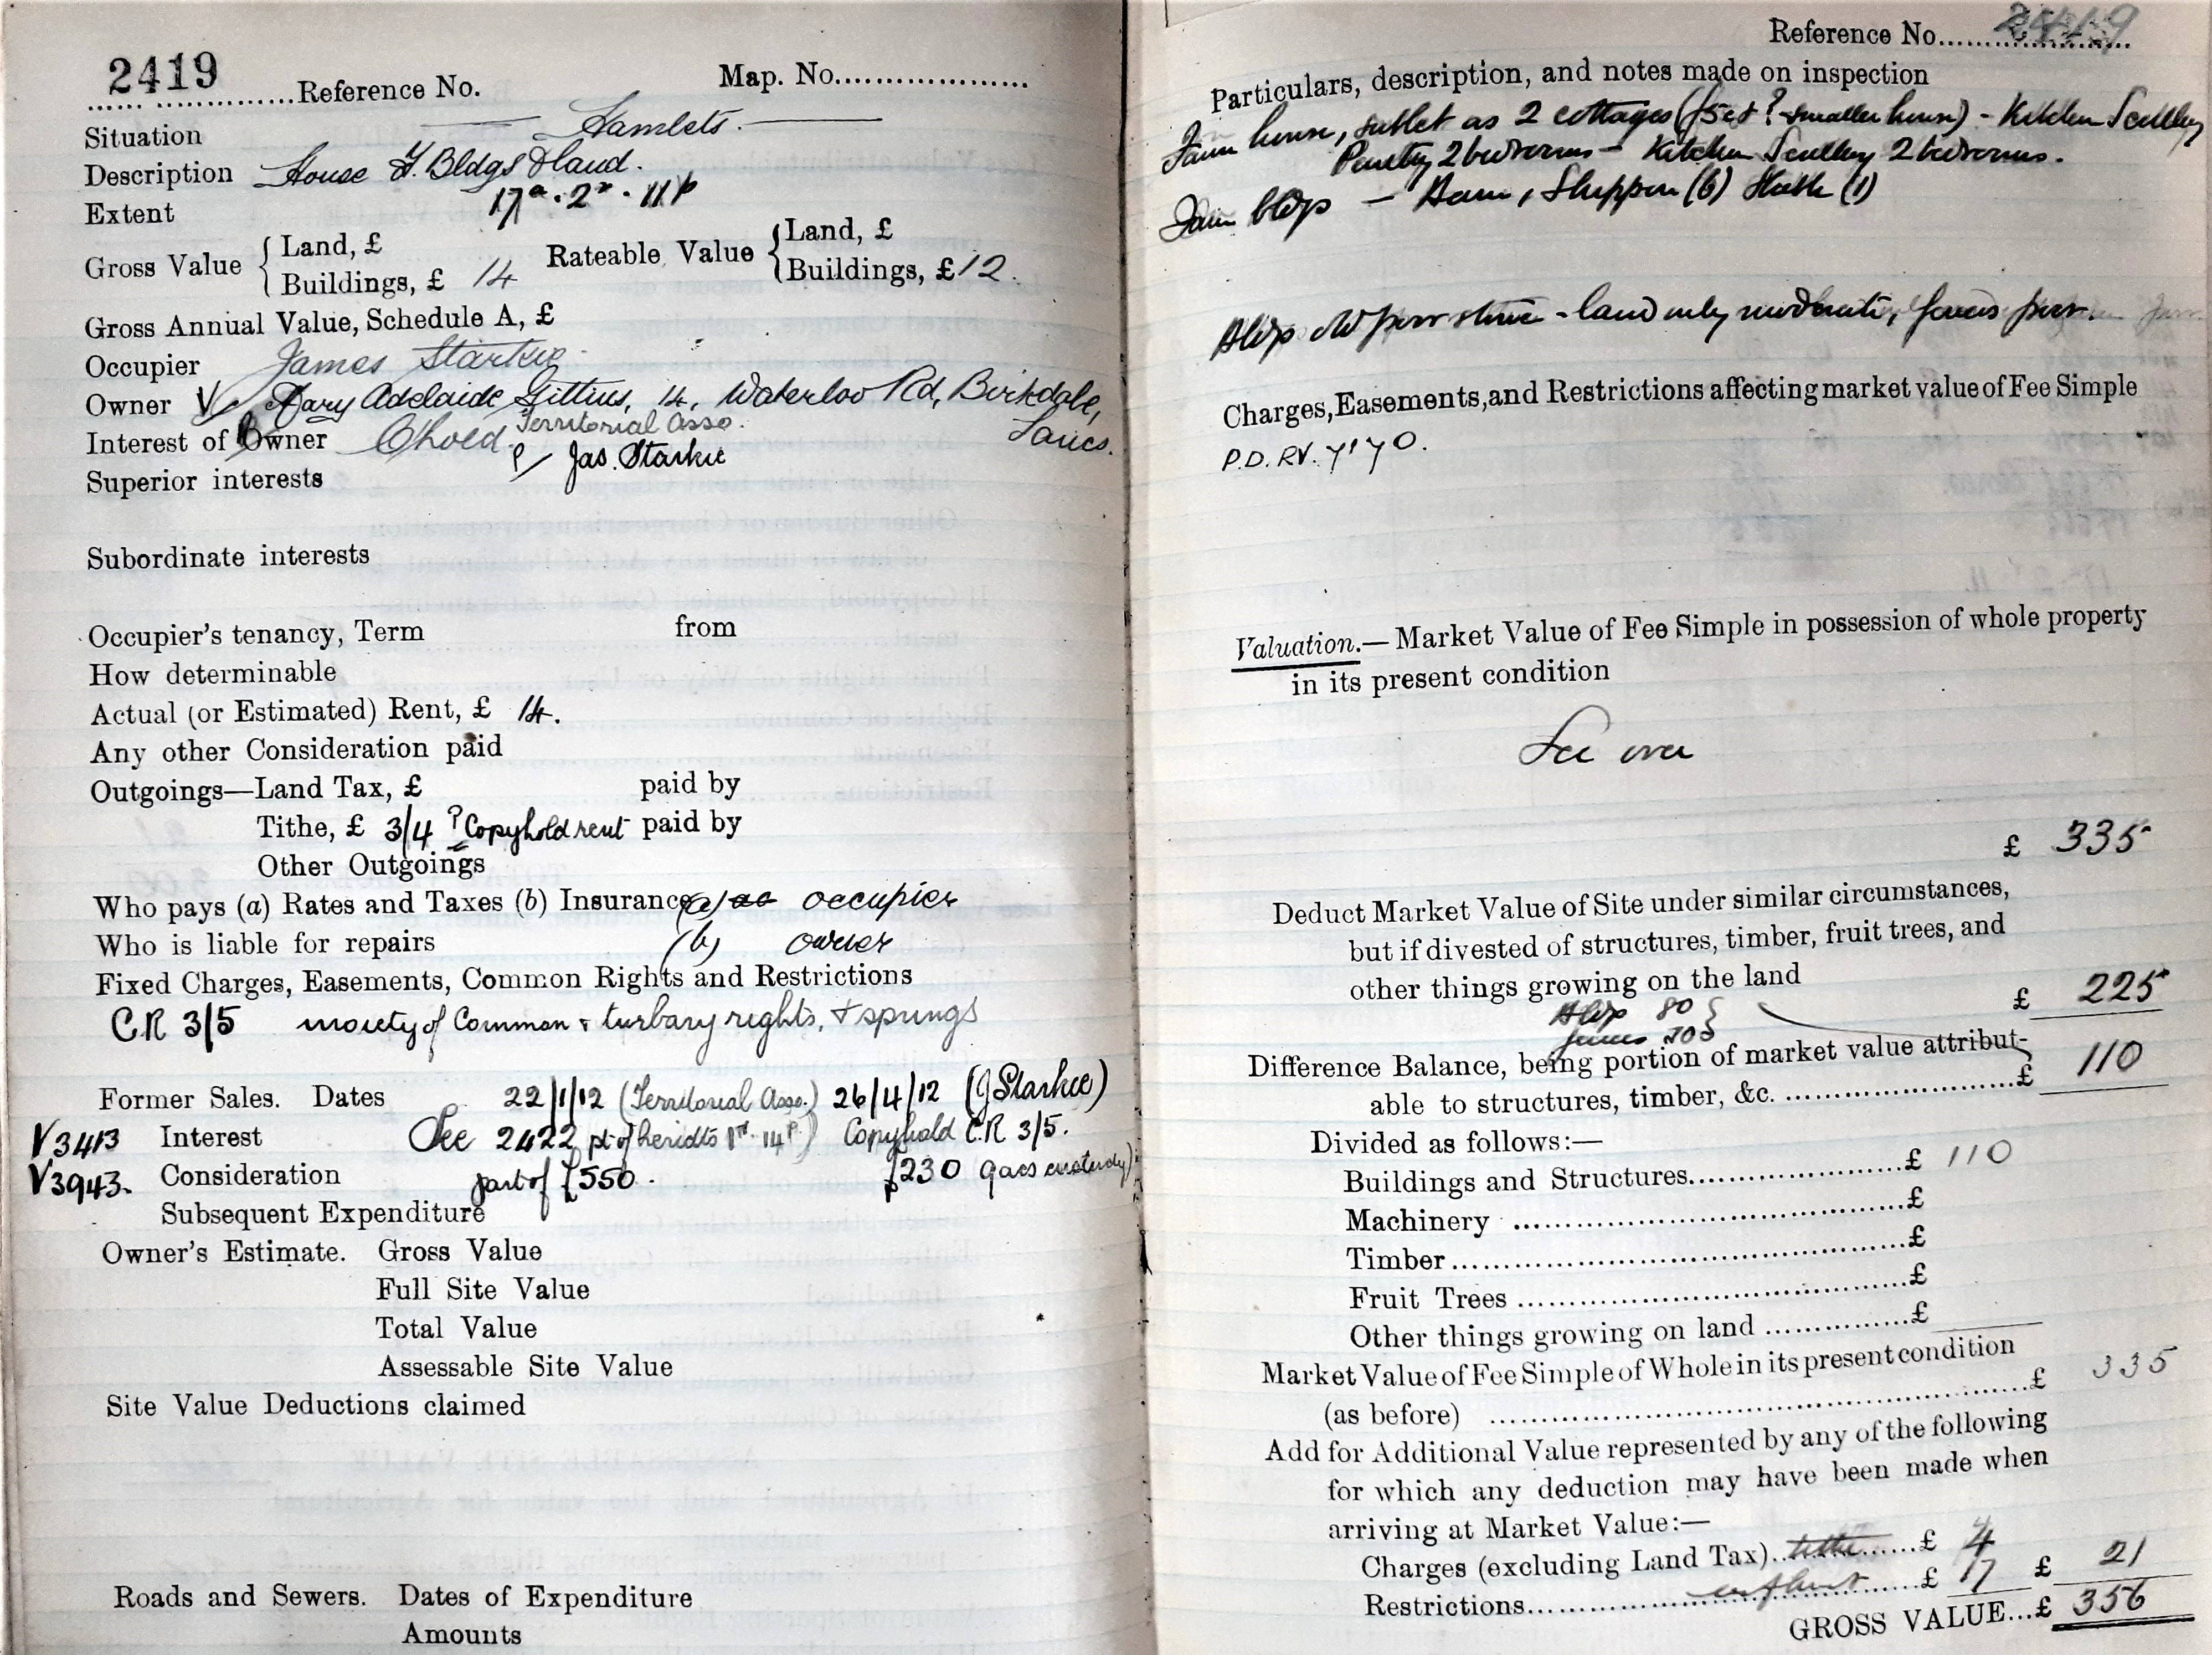 2419
Reference No. Map. No.
Situation Hamlets.
Description House F. Bldgs & land.
Extent 17a. 2r. 11p
Gross Value { Land, £ Rateable Value { Land, £
Buildings, £ 14 Buildings, £ 12.
Gross Annual Value, Schedule A, £
Occupier James Starkie
Owner Mary Adelaide Gittins, 14, Waterloo Rd, Birkdale,
Territorial Asso. Lancs.
Interest of Owner C'hold. Jas. Starkie
Superior interests
Subordinate interests
Occupier's tenancy, Term from
How determinable
Actual (or Estimated) Rent, £ 14.
Any other Consideration paid
Outgoings—Land Tax, £ paid by
Tithe, £ 3/4 ? Copyhold rent paid by
Other Outgoings
Who pays (a) Rates and Taxes (b) Insurance (a) occupier
Who is liable for repairs (b) owner
Fixed Charges, Easements, Common Rights and Restrictions
C.R 3/5 moiety of Common & turbary rights, & springs
Former Sales. Dates 22/1/12 (Territorial Asso.) 26/4/12 (J Starkie)
V3413 Interest See 2422 pt of heridts 1r. 14p) Copyhold C.R 3/5.
V3943. Consideration part of £550. £230
Subsequent Expenditure
Owner's Estimate. Gross Value
Full Site Value
Total Value
Assessable Site Value
Site Value Deductions claimed
Roads and Sewers. Dates of Expenditure
Amounts
Reference No. 2419
Particulars, description, and notes made on inspection
Farm house, sublet as 2 cottages ( ? smaller house) - Kitchen Scullery
Pantry 2 bedrooms - Kitchen Scullery 2 bedrooms.
Farm bldgs - Barn, Shippon (6) Stable (1)
Bldgs old poor stone - land only moderate, fences poor.
Charges, Easements, and Restrictions affecting market value of Fee Simple
P.D. RV.
Valuation.— Market Value of Fee Simple in possession of whole property
in its present condition
See over
£ 335
Deduct Market Value of Site under similar circumstances,
but if divested of structures, timber, fruit trees, and
other things growing on the land
£ 225
Bldgs 80 }
fences 30 }
Difference Balance, being portion of market value attribut-
able to structures, timber, &c. £ 110
Divided as follows:—
Buildings and Structures £ 110
Machinery £
Timber £
Fruit Trees £
Other things growing on land £
Market Value of Fee Simple of Whole in its present condition
(as before) £ 335
Add for Additional Value represented by any of the following
for which any deduction may have been made when
arriving at Market Value:—
Charges (excluding Land Tax) tithe £ 4
Restrictions £ 17 £ 21
GROSS VALUE...£ 356